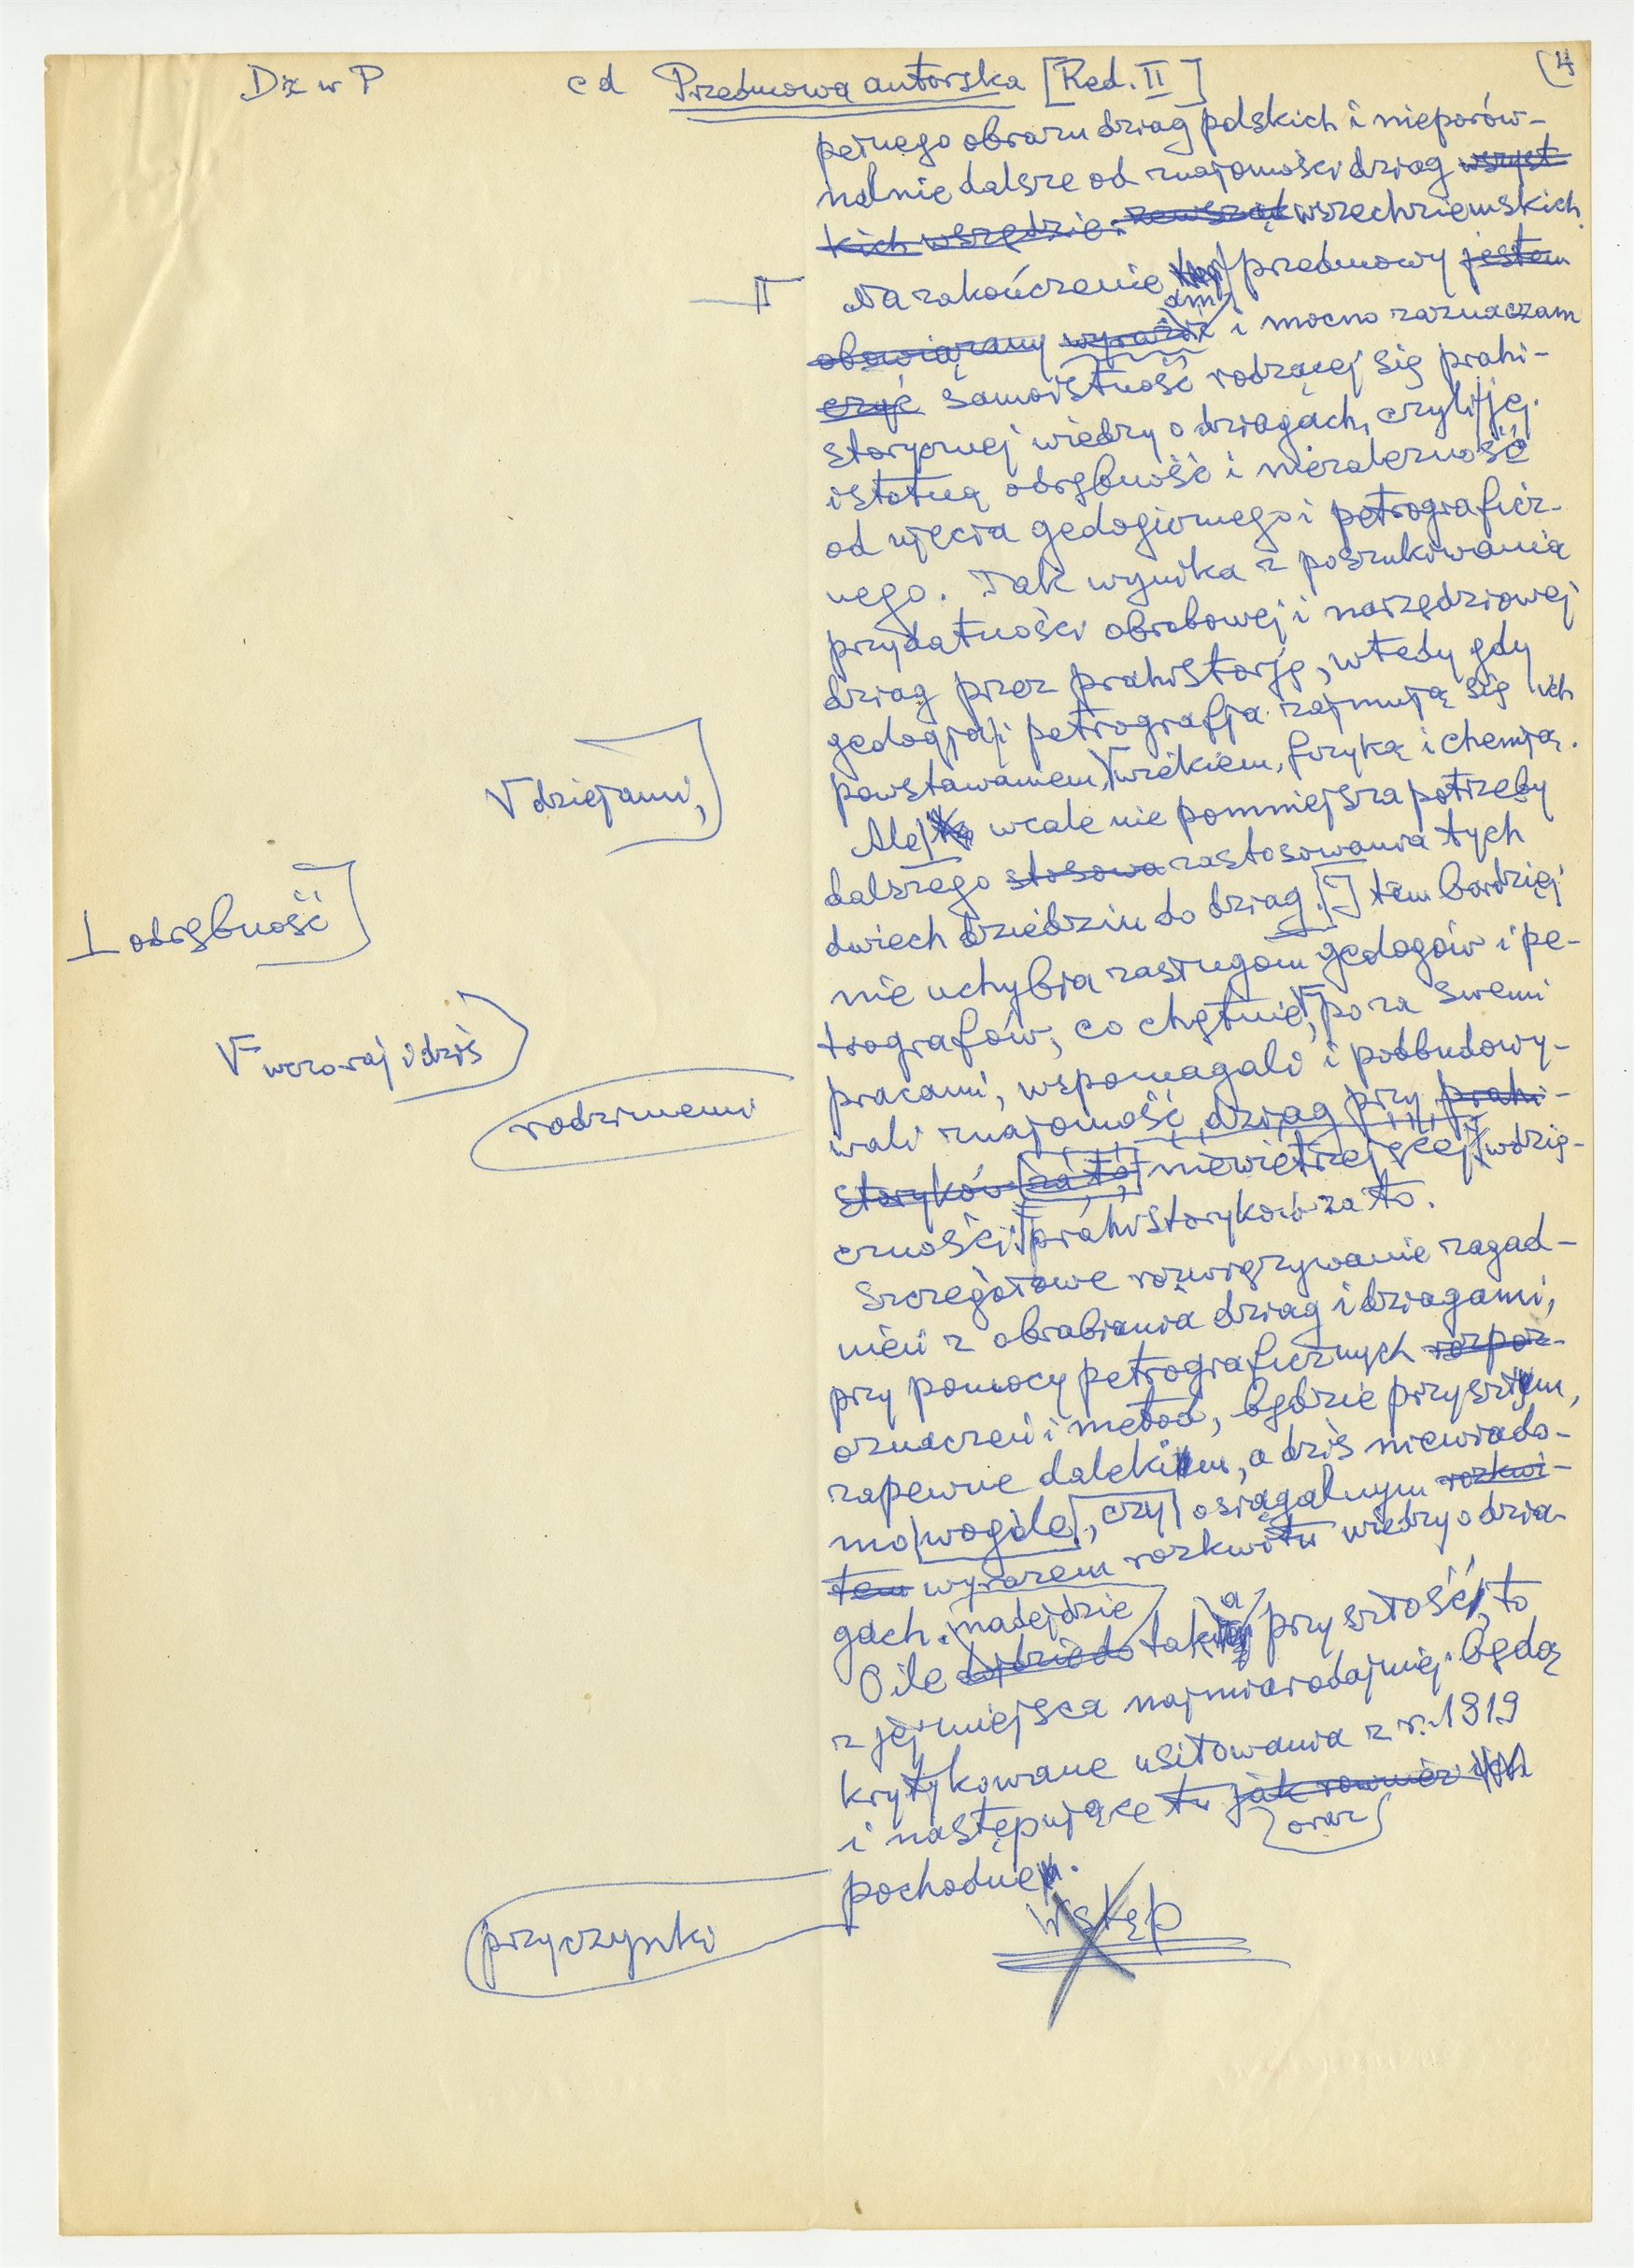 Dz w P cd Przedmowa autorska [Red. II] (4
pełnego obrazu dziag polskich i nieporów-
nalnie dalsze od znajomości dziag wszyst
kich wszędzie. zewsząd wszechziemskich.
II Na zakończenie tej przedmowy jestem
obowiązany wyrazić i mocno zaznaczam
czyć samoistność rodzącej się prahi-
storycznej wiedzy o dziagach, czyli jej
istotną odrębność i niezależność
od ujęcia geologicznego i petrograficz-
nego. Tak wynika z poszukiwania
przydatności obrobowej i narzędziowej
dziag przez prahistorję, wtedy gdy
geologja i petrografja zajmują się ich
powstawaniem, wiekiem, fizyką i chemją.
V dziejami,
Ale wcale nie pomniejsza potrzeby
dalszego stosowa zastosowania tych
dwiech dziedzin do dziag. tem bardziej
⊥ odrębność
nie uchybia zasługom geologów i pe-
trografów, co chętnie, poza swemi
V wczoraj i dziś
pracami, wspomagali i podbudowy-
rodzimemi
wali znajomość dziag przy prahi-
storyków za to, niewietrzejącej wdzię-
czności prahistoryków za to.
Szczegółowe rozwiązywanie zagad-
nień z obrabiania dziag i dziagami,
przy pomocy petrograficznych rozpoz-
oznaczeń i metod, będzie przyszłem,
zapewne dalekiem, a dziś niewiado-
mo wogóle, czy osiągalnym rozkwi-
tem wyrazem rozkwitu wiedzy o dzia-
gach. nadejdzie
O ile dojdzie do taka przyszłość, to
z jej miejsca najmiarodajniej będą
krytykowane usiłowania z r. 1919
i następujące tu jak również ich
oraz
pochodne.
przyczynki
Wstęp